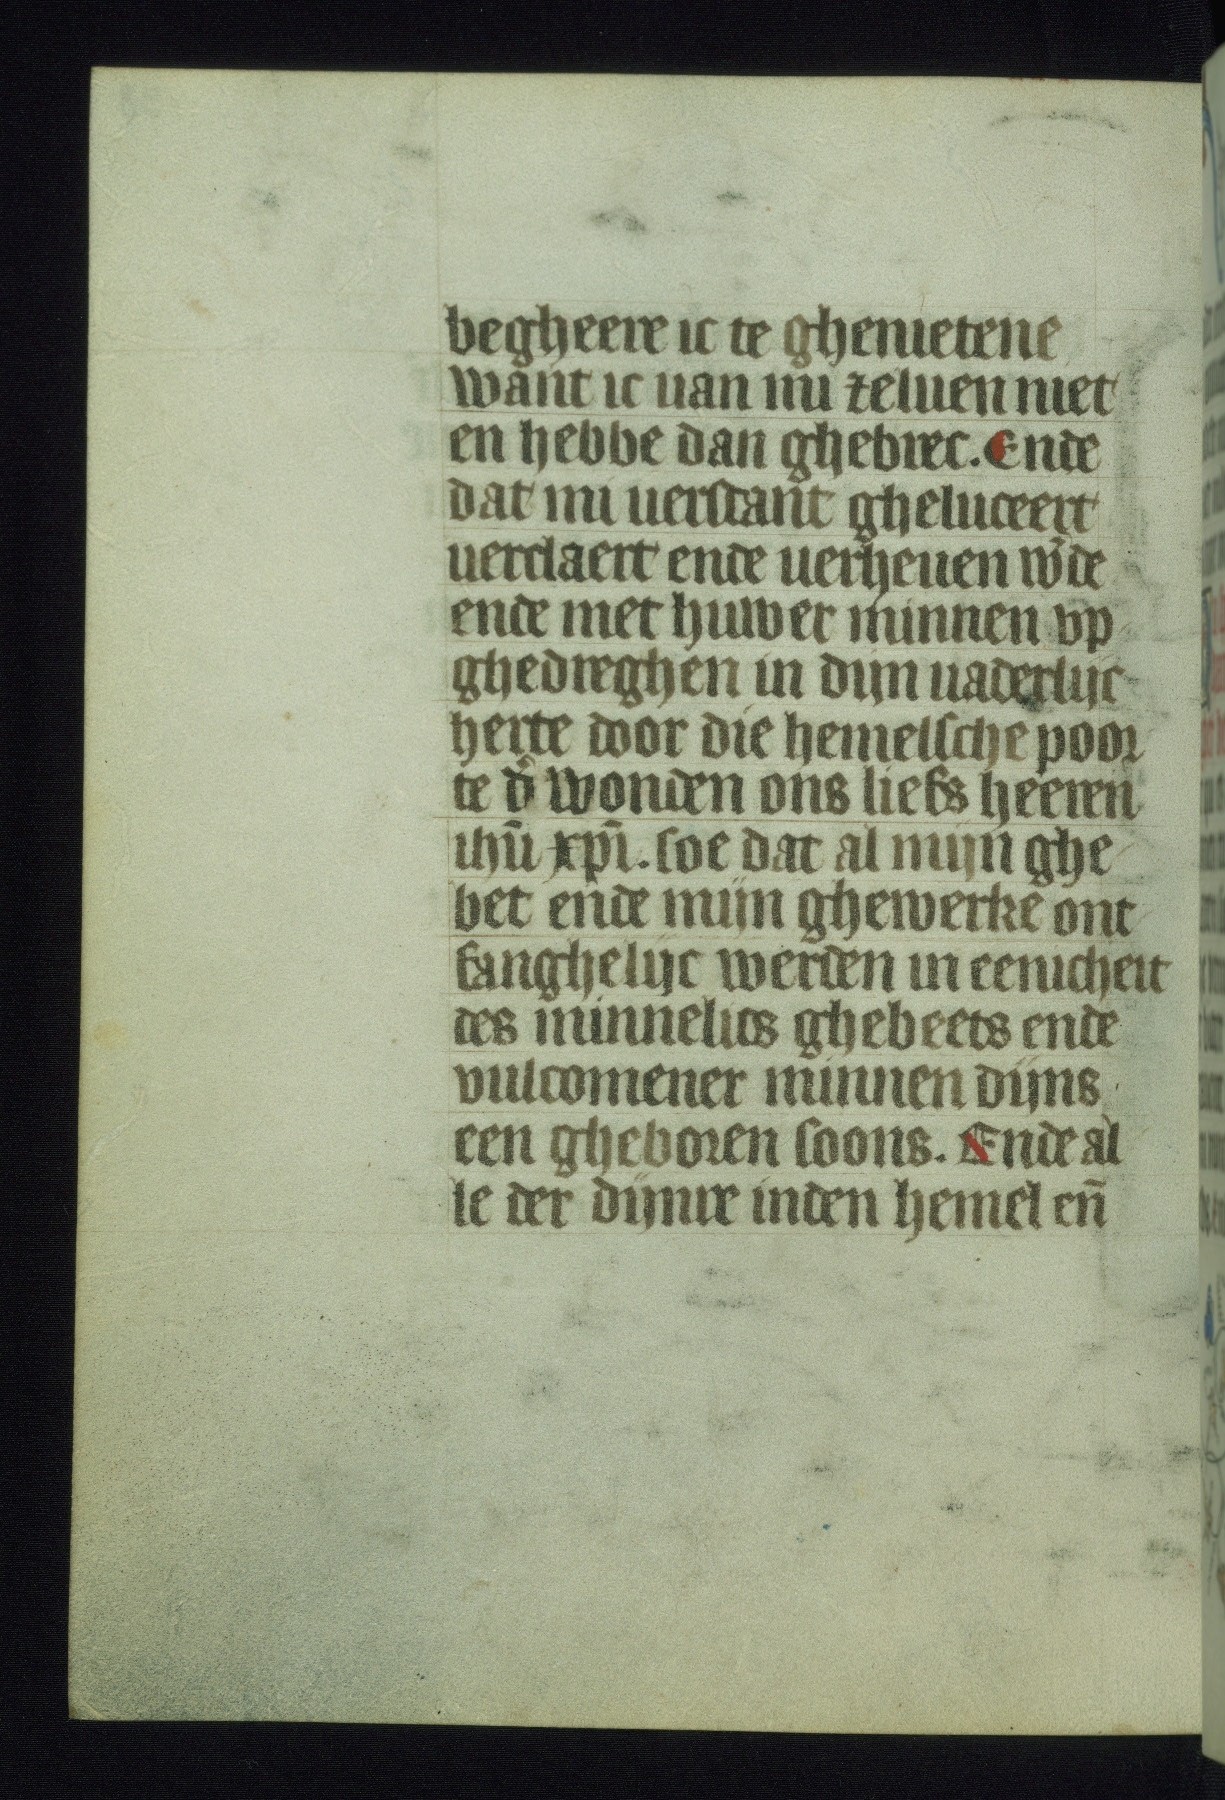 begheere ic te ghenietene
want ic uan mi zeluen niet
en hebbe dan ghebrec. Ende
dat mi uerstant gheluceert
uerclaert ende uerheuen w̄de
ende met huwer minnen vp
ghedreghen in dijn uaderlijc
herte door die hemelsche poor
te d̄ wonden ons liefs heeren
ihū xp̄i. soe dat al mijn ghe
bet ende mijn ghewerke ont
fanghelijc werden in eenicheit
des minnelics ghebeets ende
vulcomener minnen dijns
een gheboren soons. Ende al
le der dijnre inden hemel en̄